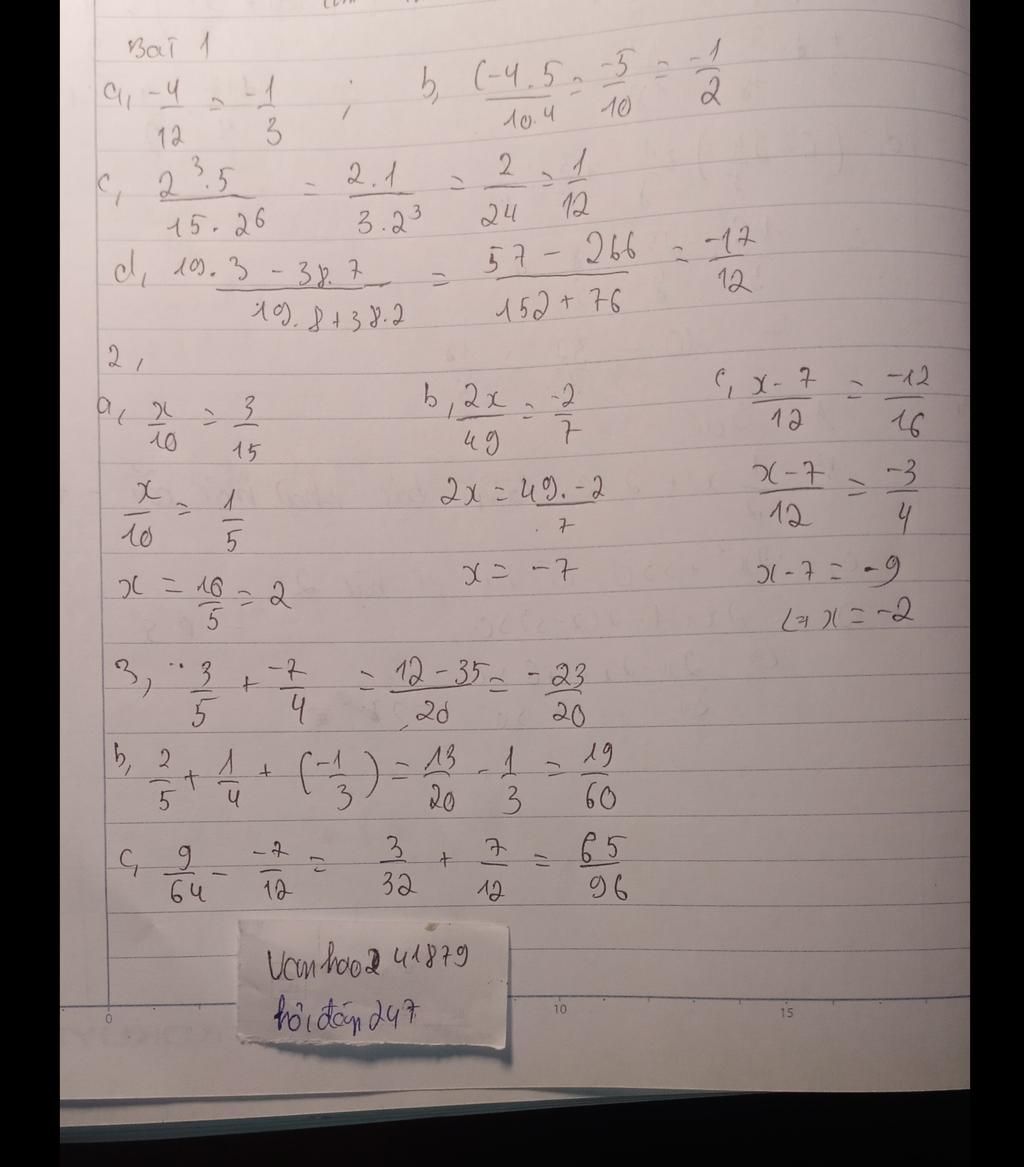 Bài 1
a, -4/12 = -1/3 ; b, (-4.5/10.4 = -5/10 = -1/2
c, 2³.5/15.2⁶ = 2.1/3.2³ = 2/24 = 1/12
d, 19.3 - 38.7/19.8+38.2 = 57 - 266/152 + 76 = -17/12
2,
a, x/10 = 3/15 b, 2x/49 = -2/7 c, x-7/12 = -12/16
x/10 = 1/5 2x = 49.-2/7 x-7/12 = -3/4
x = 10/5 = 2 x = -7 x-7 = -9
<=> x = -2
3, 3/5 + -7/4 = 12-35/20 = -23/20
b, 2/5 + 1/4 + (-1/3) = 13/20 - 1/3 = 19/60
c, 9/64 - -7/12 = 3/32 + 7/12 = 65/96
Vanhao241879
hỏi đáp 247
0 10 15